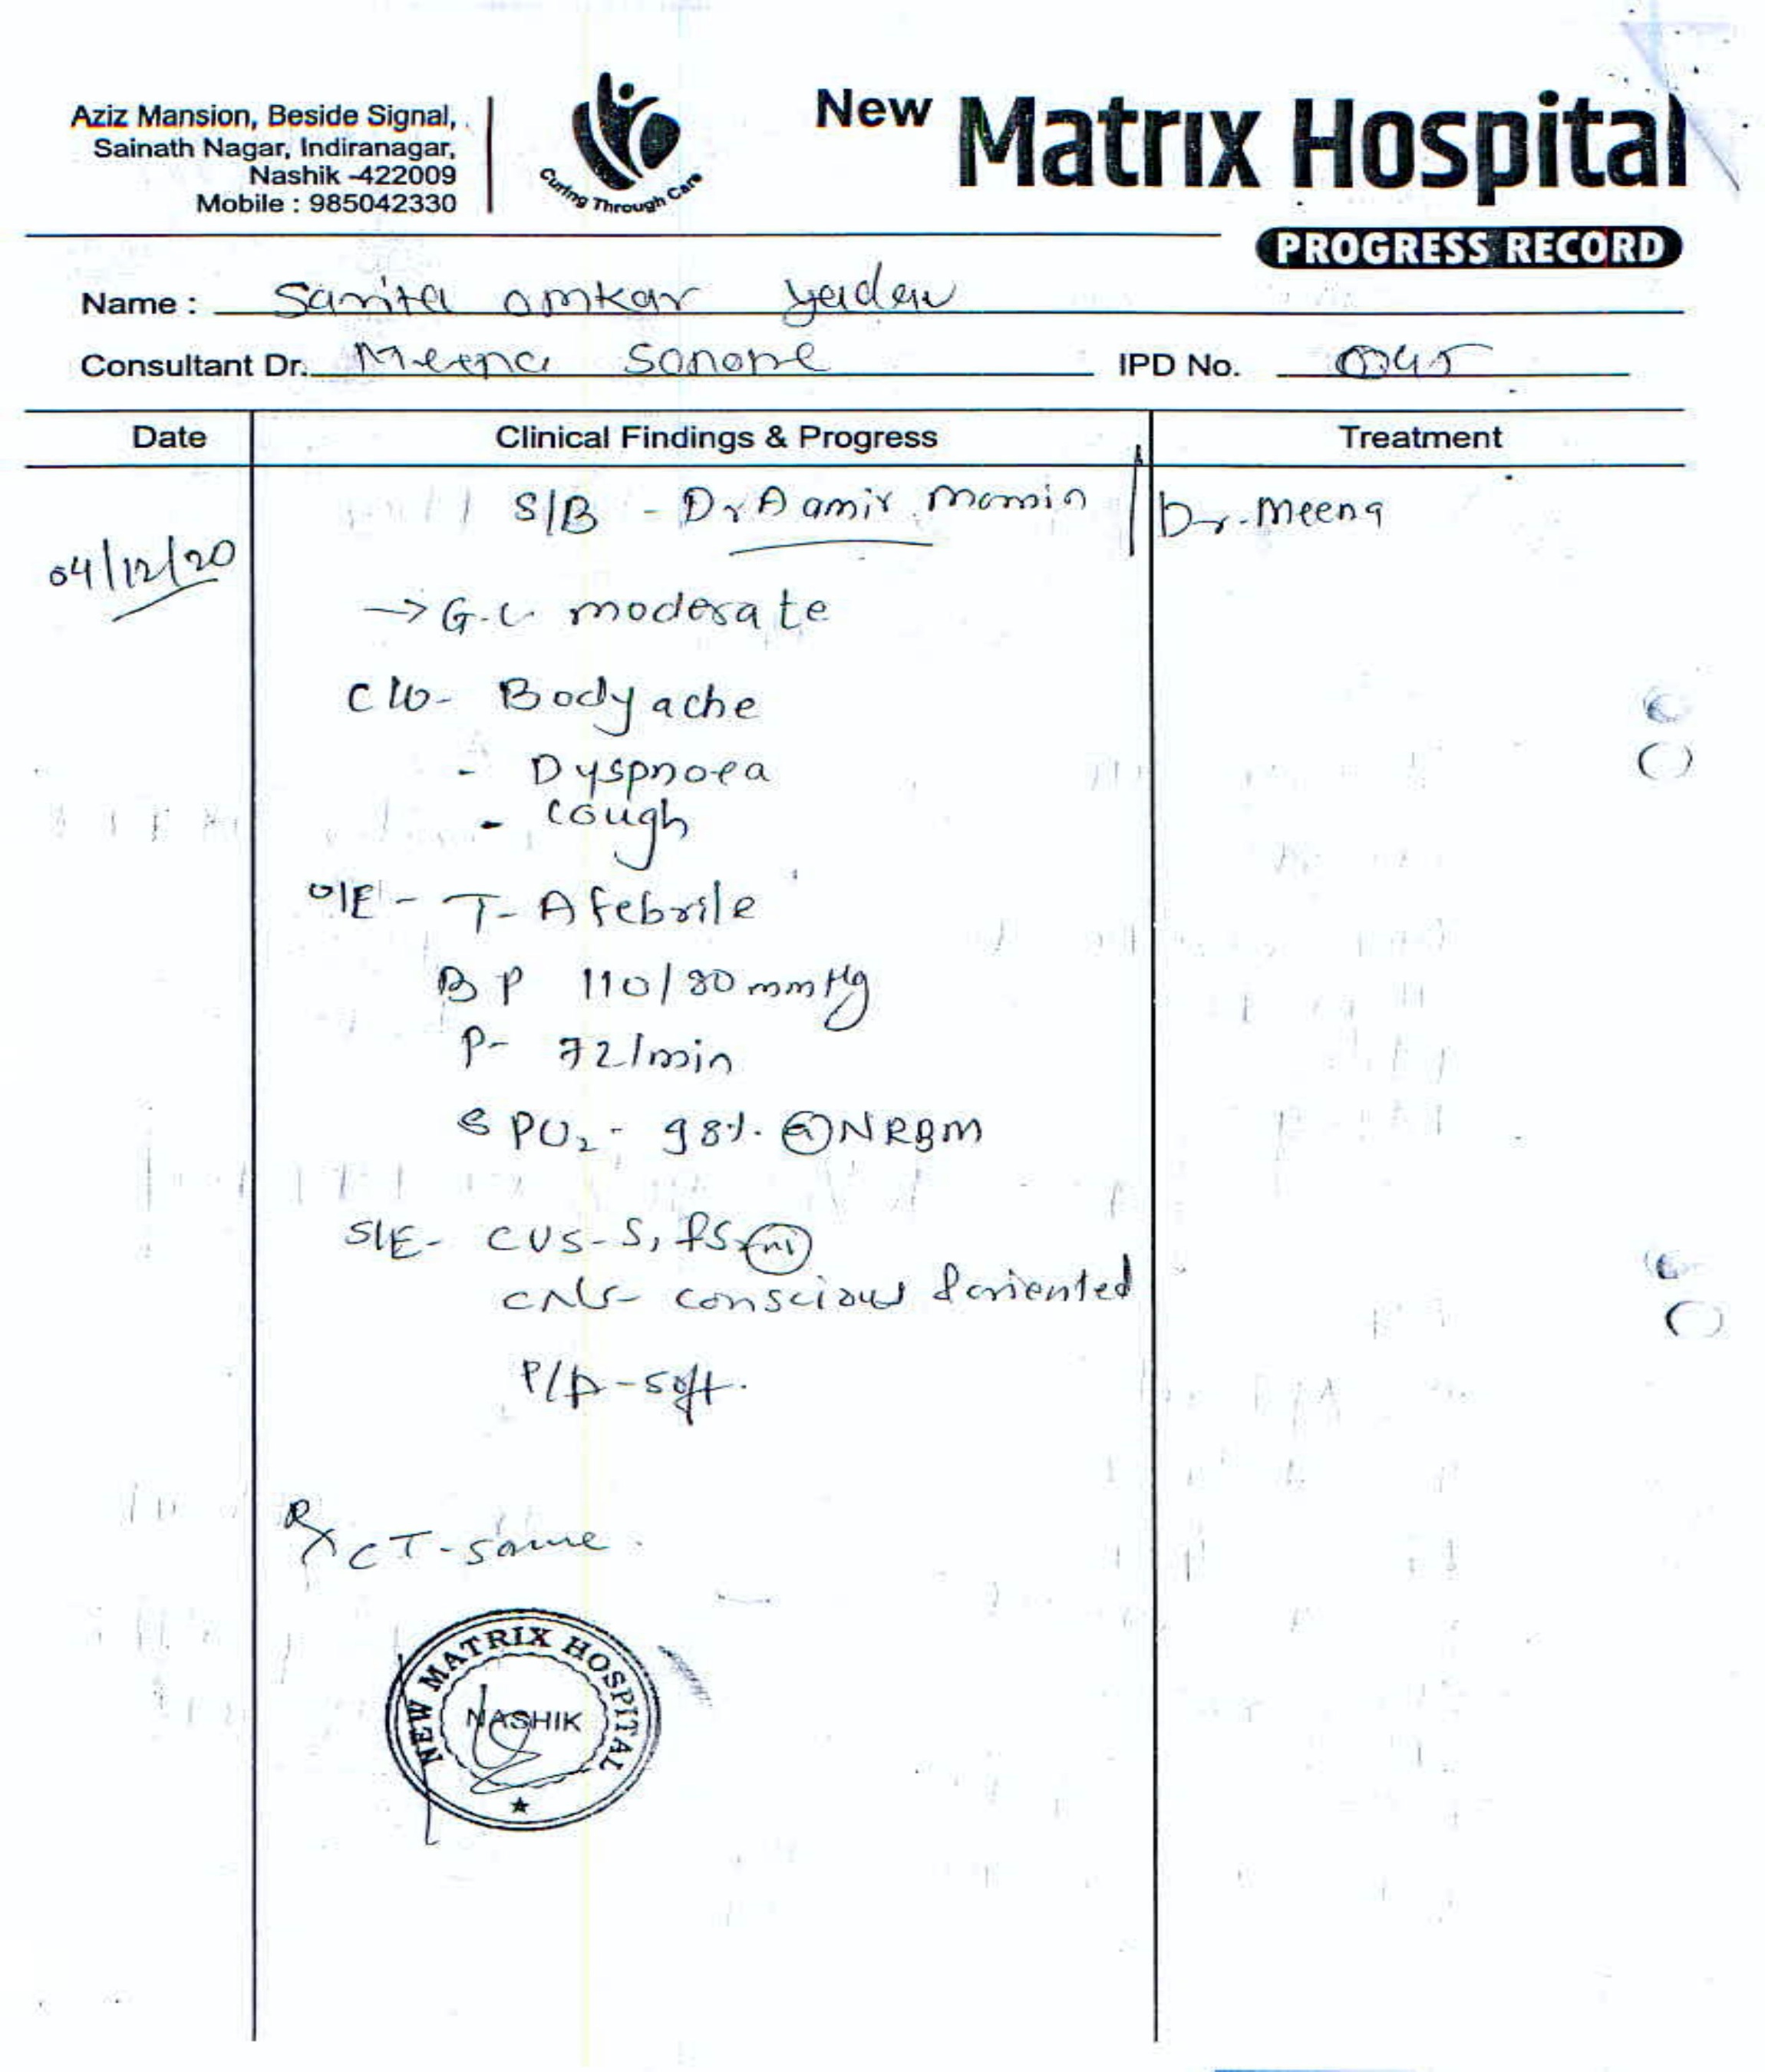 Aziz Mansion, Beside Signal,
Sainath Nagar, Indiranagar,
Nashik -422009
Mobile : 985042330
Curing Through Care
New Matrix Hospital
PROGRESS RECORD
Name : Sarita omkar yadav
Consultant Dr. Meena Sonone IPD No.
Date Clinical Findings & Progress Treatment
S/B - Dr Aamir Momin / Dr. Meena
04/12/20
→ G.C. moderate
C/o - Bodyache
- Dyspnoea
- cough
O/E - T- Afebrile
BP 110/80 mmHg
P- 72/min
SPO2 - 98%. @ NRBM
S/E - CVS - S1 S2
CNS - conscious & oriented
P/A - soft.
Rx CT - same.
NEW MATRIX HOSPITAL
NASHIK